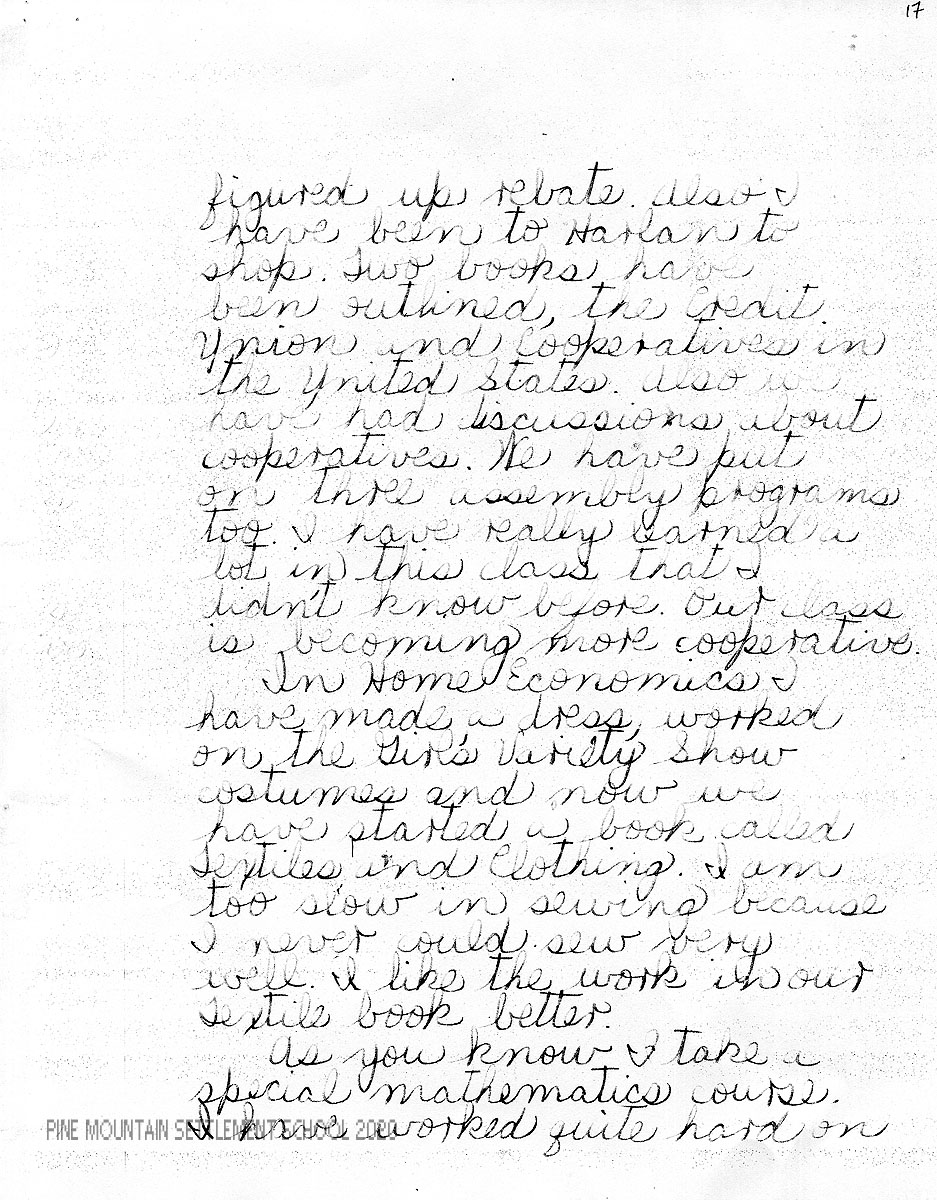 17
figured up rebate. Also I
have been to Harlan to
shop. Two books have
been outlined, the Credit
Union and Cooperatives in
the United States. Also we
have had discussions about
cooperatives. We have put
on three assembly programs
too. I have really learned a
lot in this class that I
didn't know before. Our class
is becoming more cooperative.
In Home Economics I
have made a dress, worked
on the Girl's Variety Show
costumes and now we
have started a book called
Textiles and Clothing. I am
too slow in sewing because
I never could sew very
well. I like the work in our
Textile book better.
As you know I take a
special mathematics course.
I have worked quite hard on
PINE MOUNTAIN SETTLEMENT SCHOOL 2020